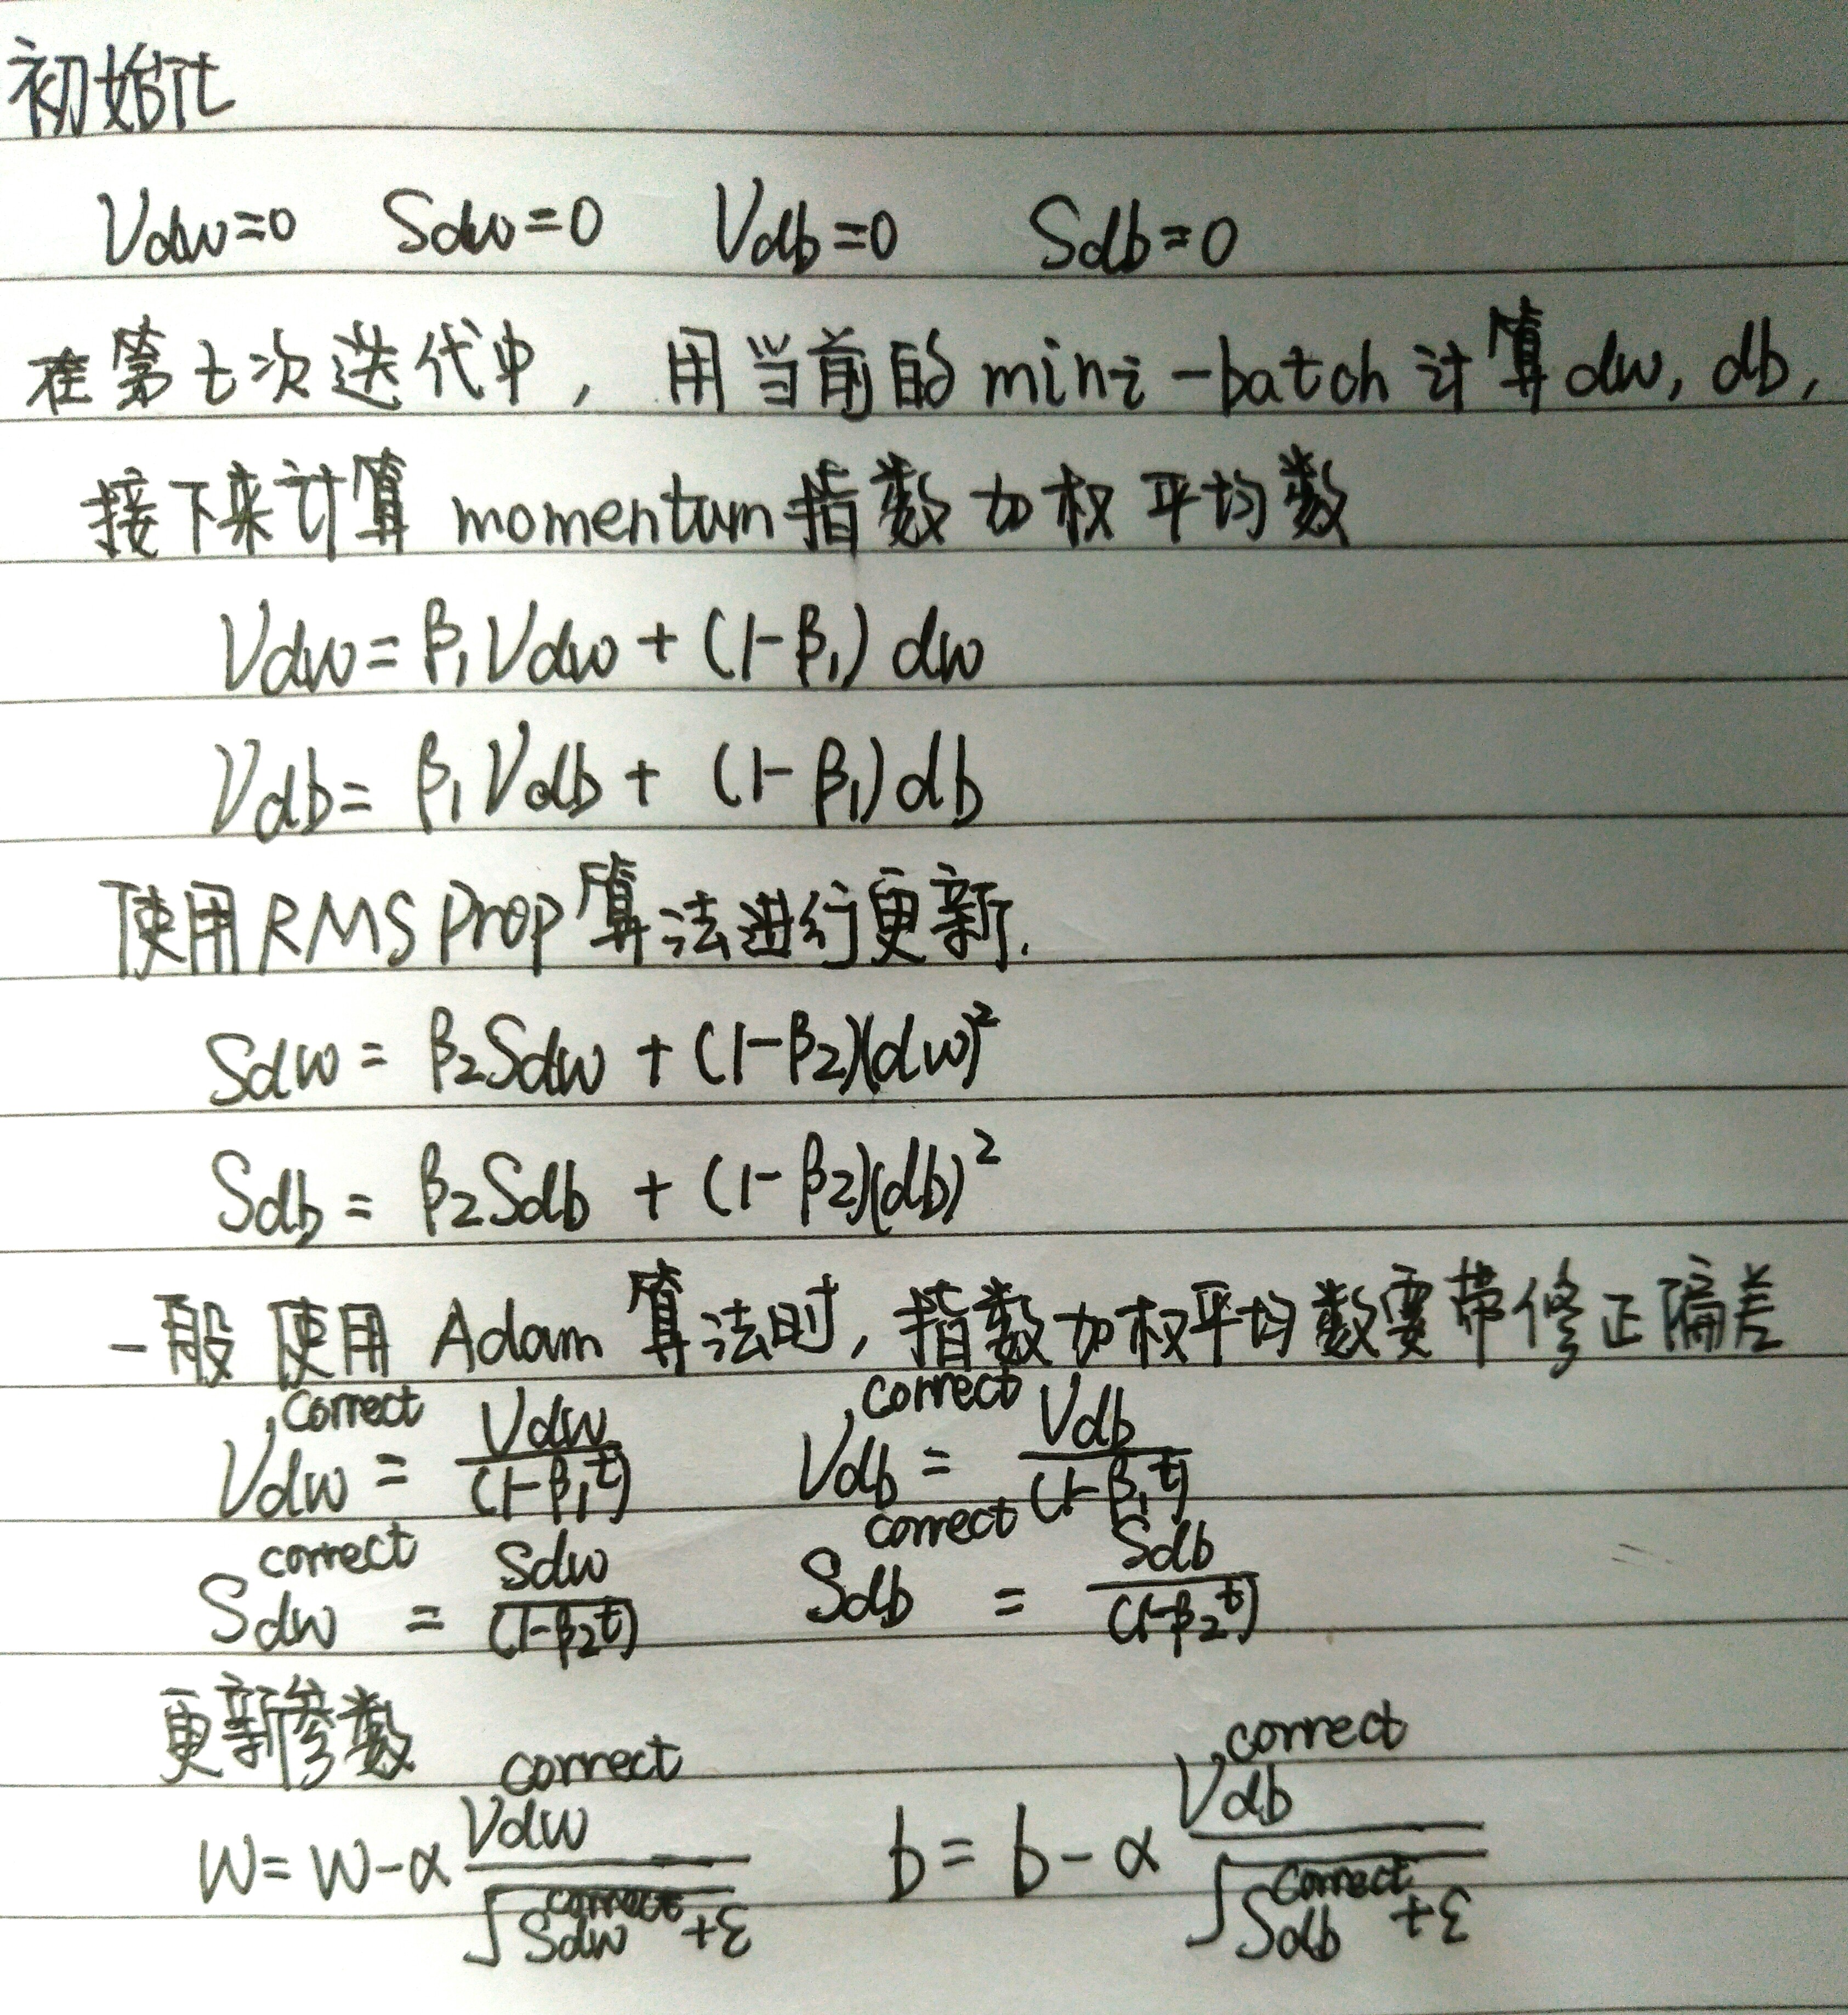 初始化
Vdw=0 Sdw=0 Vdb=0 Sdb=0
在第t次迭代中，用当前的mini-batch计算dw, db,
接下来计算momentum指数加权平均数
Vdw = β₁Vdw + (1-β₁) dw
Vdb = β₁Vdb + (1-β₁) db
使用RMS Prop算法进行更新.
Sdw = β₂Sdw + (1-β₂)(dw)²
Sdb = β₂Sdb + (1-β₂)(db)²
一般使用Adam算法时, 指数加权平均数要带修正偏差
Vdw^correct = Vdw/(1-β₁^t) Vdb^correct = Vdb/(1-β₁^t)
Sdw^correct = Sdw/(1-β₂^t) Sdb^correct = Sdb/(1-β₂^t)
更新参数
W = W - α Vdw^correct/√(Sdw^correct+ε) b = b - α Vdb^correct/√(Sdb^correct+ε)